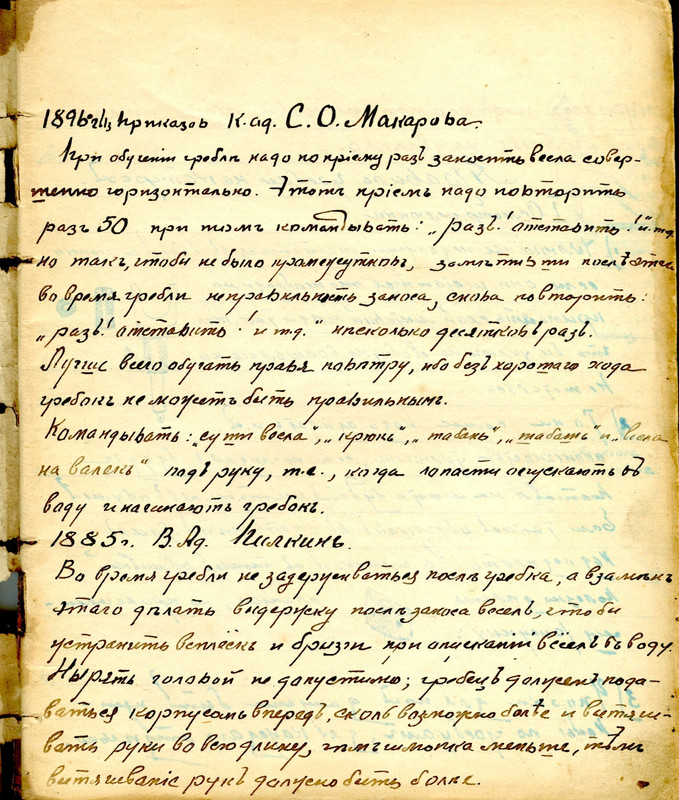 1896 г. Из приказов К. ад. С. О. Макарова.
При обученіи греблѣ надо по пріему разъ заносить весла совер-
шенно горизонтально. Этотъ пріемъ надо повторить
разъ 50 при томъ командывать: „разъ! отставить! и т.д.
но такъ, чтобы не было промежутковъ, замѣтивши послѣ этого
во время гребли неправильность заноса, снова повторить:
„разъ! отставить! и т.д." нѣсколько десятковъ разъ.
Лучше всего обучать правя по вѣтру, ибо безъ хорошаго хода
гребокъ не можетъ быть правильнымъ.
Командывать: „суши весла", „крюкъ", „табань", „шабашъ" и „весла
на валекъ" подъ руку, т.е., когда лопасти опускаютъ въ
воду и начинаютъ гребокъ.
1885 г. В. Ад. Пилкинъ.
Во время гребли не задерживаться послѣ гребка, а взамѣнъ
этаго дѣлать выдержку послѣ заноса веселъ, чтобы
устранить всплёскъ и брызги при опусканіи вёселъ въ воду.
Нырять головой не допустимо; гребецъ долженъ пода-
ваться корпусомъ впередъ, сколь возможно болѣе и вытяги-
вать руки во всю длину, чѣмъ шлюпка меньше, тѣмъ
вытягиваніе рукъ должно быть болѣе.